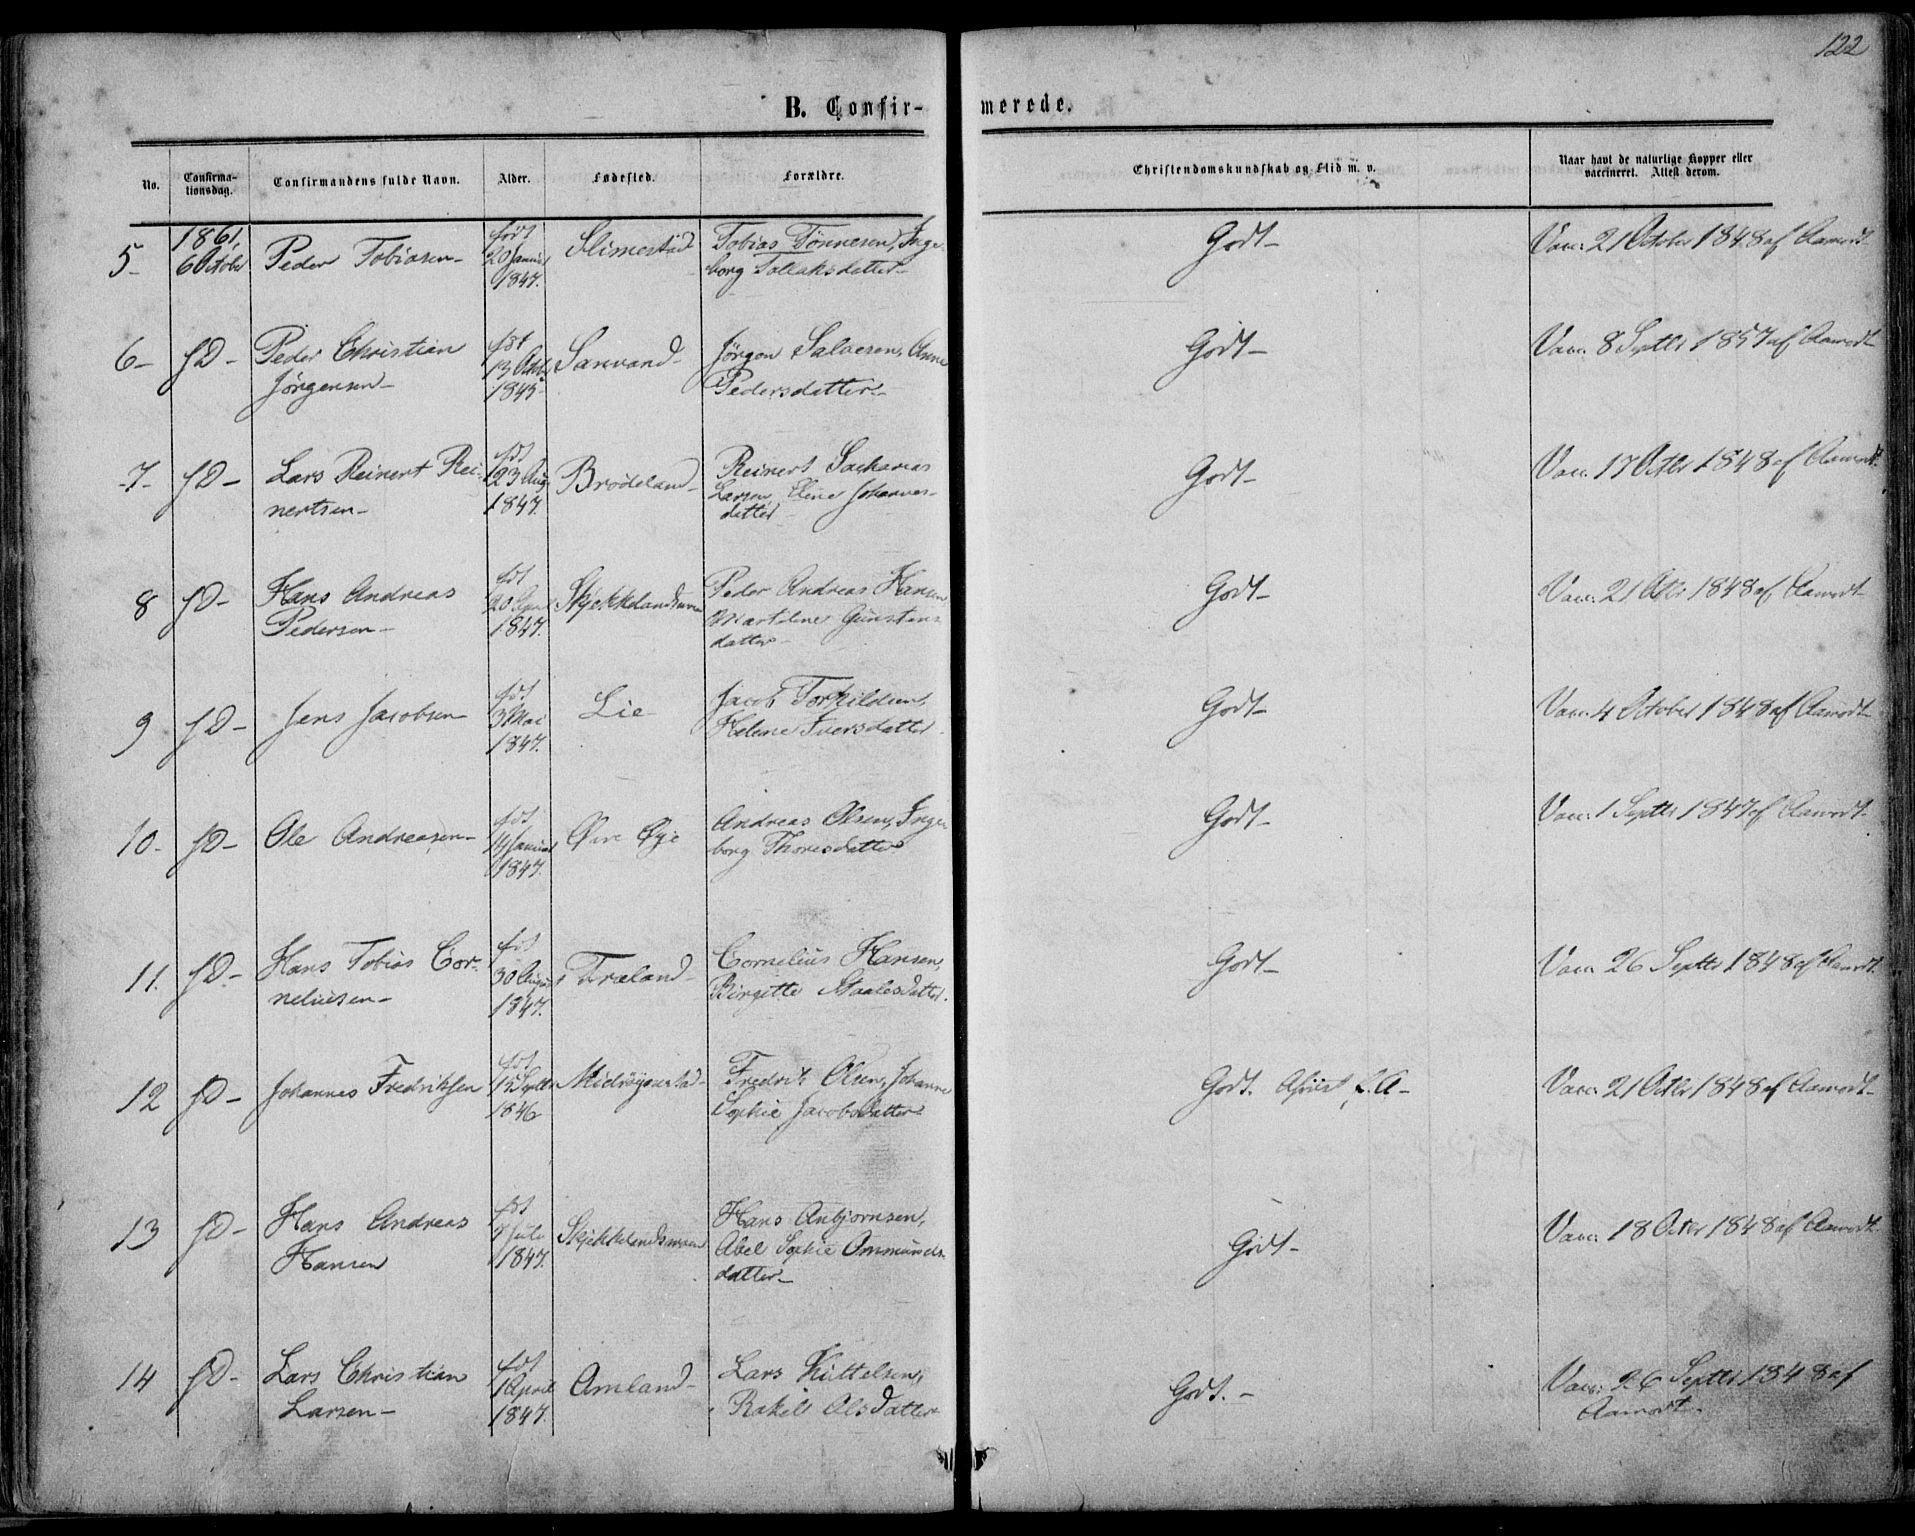 122
B. Confirmerede.
No. Confirmationsdag. Confirmandens fulde Navn. Alder. Fødested. Forældre. Christendomskundskab og Flid m. v. Naar havt de naturlige Kopper eller vaccineret. Attest derom.
5- 1861, 6 October Peder Tobiasen- født 20 Januar 1847. Slimestad Tobias Tønnesen, Ingeborg Tollaksdatter- Godt- Vacc. 21 October 1848 af Aamodt
6- fD- Peder Christian Jørgensen- født 13 Octbr 1845- Sanvand- Jørgen Salvesen, Anne Pedersdatter- Godt- Vacc. 8 Septbr 1857 af Aamodt
7- fD- Lars Reinert Reinertsen- født 23 Aug 1847. Brødeland- Reinert Sacharias Larsen, Eline Johannesdatter Godt- Vacc. 17 Octbr 1848 af Aamodt
8 fD- Hans Andreas Pedersen- født 20 April 1847. Skjekkelandsmoen Peder Andreas Hansen Martiline Gunstensdatter- Godt- Vacc. 21 Octbr 1848 af Aamodt-
9 fD- Jens Jacobsen- født 3 Mai 1847. Lie Jacob Torkildsen, Helene Iversdatter Godt- Vacc. 4 October 1848 af Aamodt-
10- fD- Ole Andreasen- født Januar 1847. Øvre Øye Andreas Olsen, Ingeborg Thoresdatter Godt- Vacc. 1 Septbr 1847 af Aamodt-
11. fD- Hans Tobias Corneliusen- født 30 August 1847. Træland- Cornelius Hansen, Birgitte Staalesdatter. Godt- Vacc. 26 Septbr 1848 af Aamodt.
12 fD- Johannes Fredriksen født Septbr 1846 Midrøysestad- Fredrik Olsen, Johanne Sophie Jacobsdatter Godt. Afviist f. A- Vacc. 21 Octbr 1848 af Aamodt-
13 fD- Hans Andreas Hansen født Juli 1847. Skjekkelandsmoen Hans Anbjørnsen, Abel Sophie Ommundsdatter- Godt- Vacc. 18 Octbr 1848 af Aamodt.
14 fD- Lars Christian Larsen- født 1 April 1847. Amland- Lars Kittelsen, Rakel Olsdatter Godt.- Vacc. 26 Septbr 1848 af Aamodt.